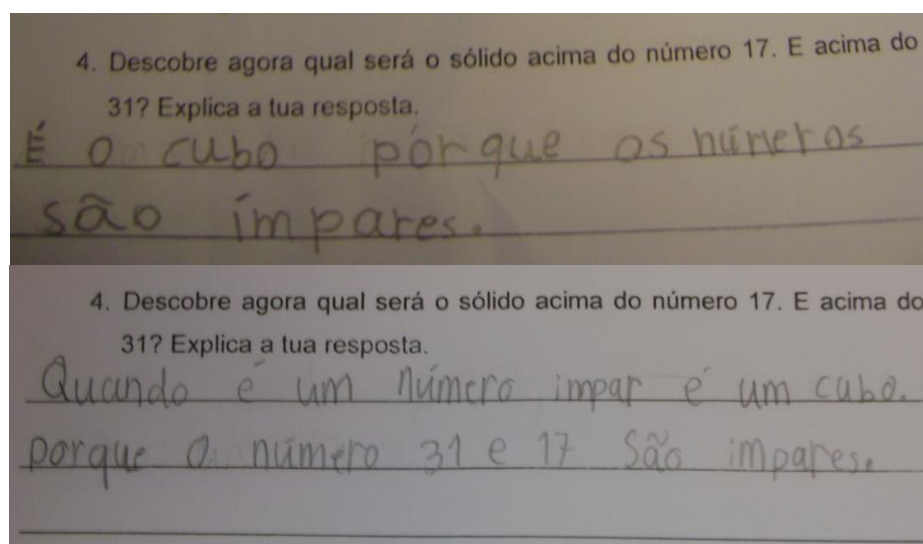 4. Descobre agora qual será o sólido acima do número 17. E acima do
31? Explica a tua resposta.
É o cubo pórque os números
são ímpares.
4. Descobre agora qual será o sólido acima do número 17. E acima do
31? Explica a tua resposta.
Quando é um número impar é um cubo.
porque o número 31 e 17 são impares.